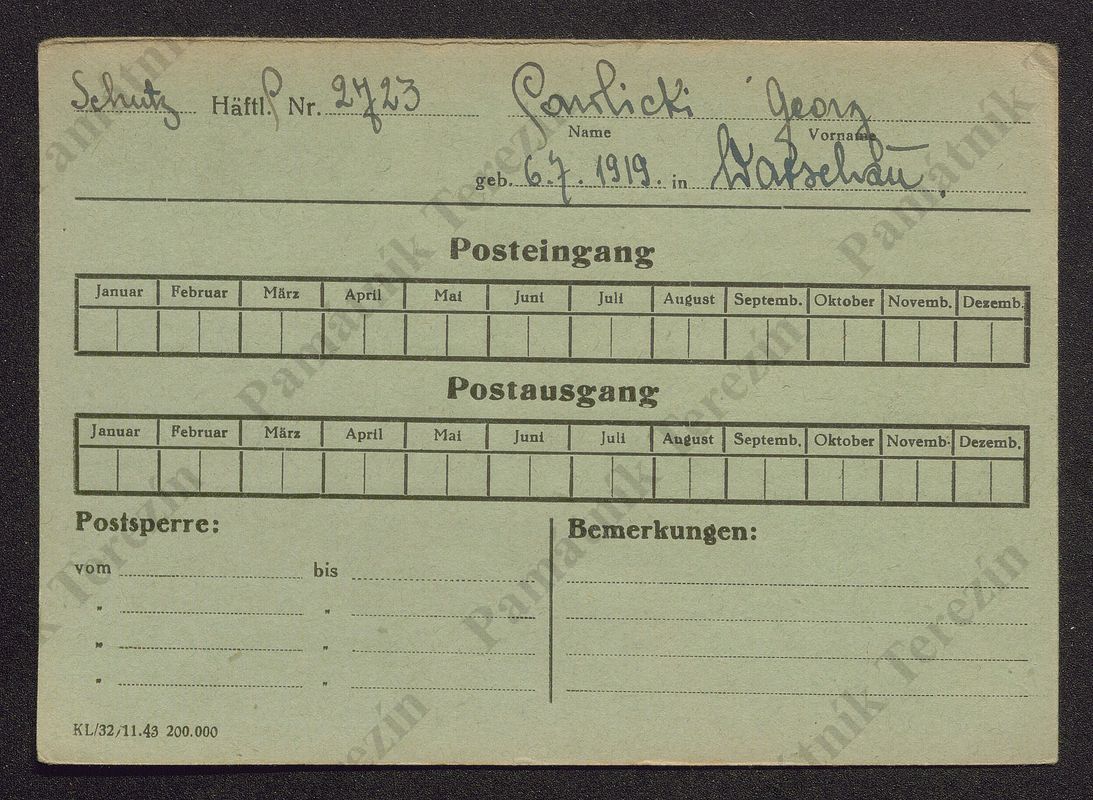 Schutz Häftl. P Nr. 2723 Pawlicki Georg
Name Vorname
geb. 6.7.1919. in Warschau.
Posteingang
Januar Februar März April Mai Juni Juli August Septemb. Oktober Novemb. Dezemb.
Postausgang
Januar Februar März April Mai Juni Juli August Septemb. Oktober Novemb. Dezemb.
Postsperre: Bemerkungen:
vom bis
" "
" "
" "
KL/32/11.43 200.000
Památník Terezín